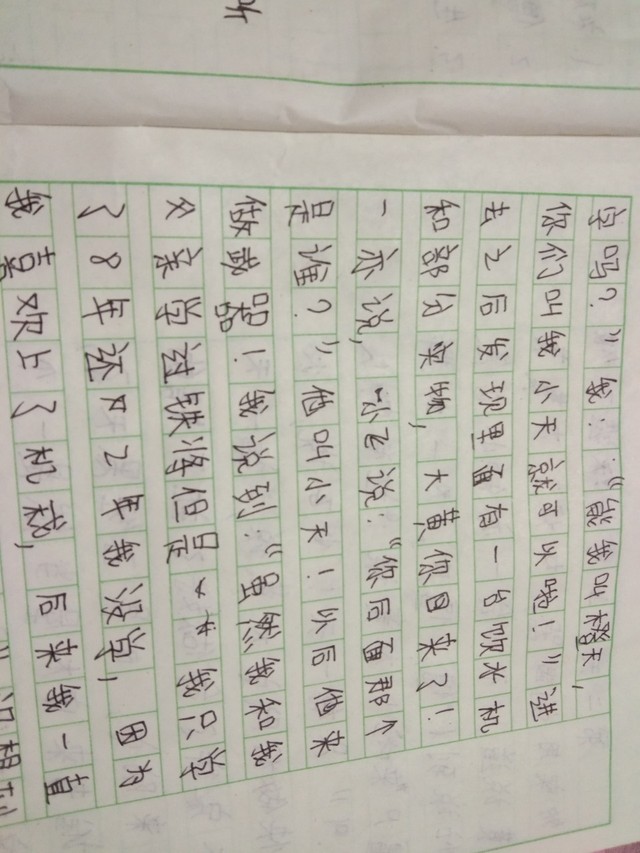 字吗？”我：“能我叫橙天，
你们叫我小天就可以啦！”进
去之后发现里面有一台饮水机
和部分物，大黄你回来了！
一亦说，小飞说：“你后面那个
是谁？”他叫小天！以后他来
做武器！我说到：“虽然我和我
父亲学过铁将但是我只学
了8年还又2年我没学，因为
我喜欢上了机械，后来我一直